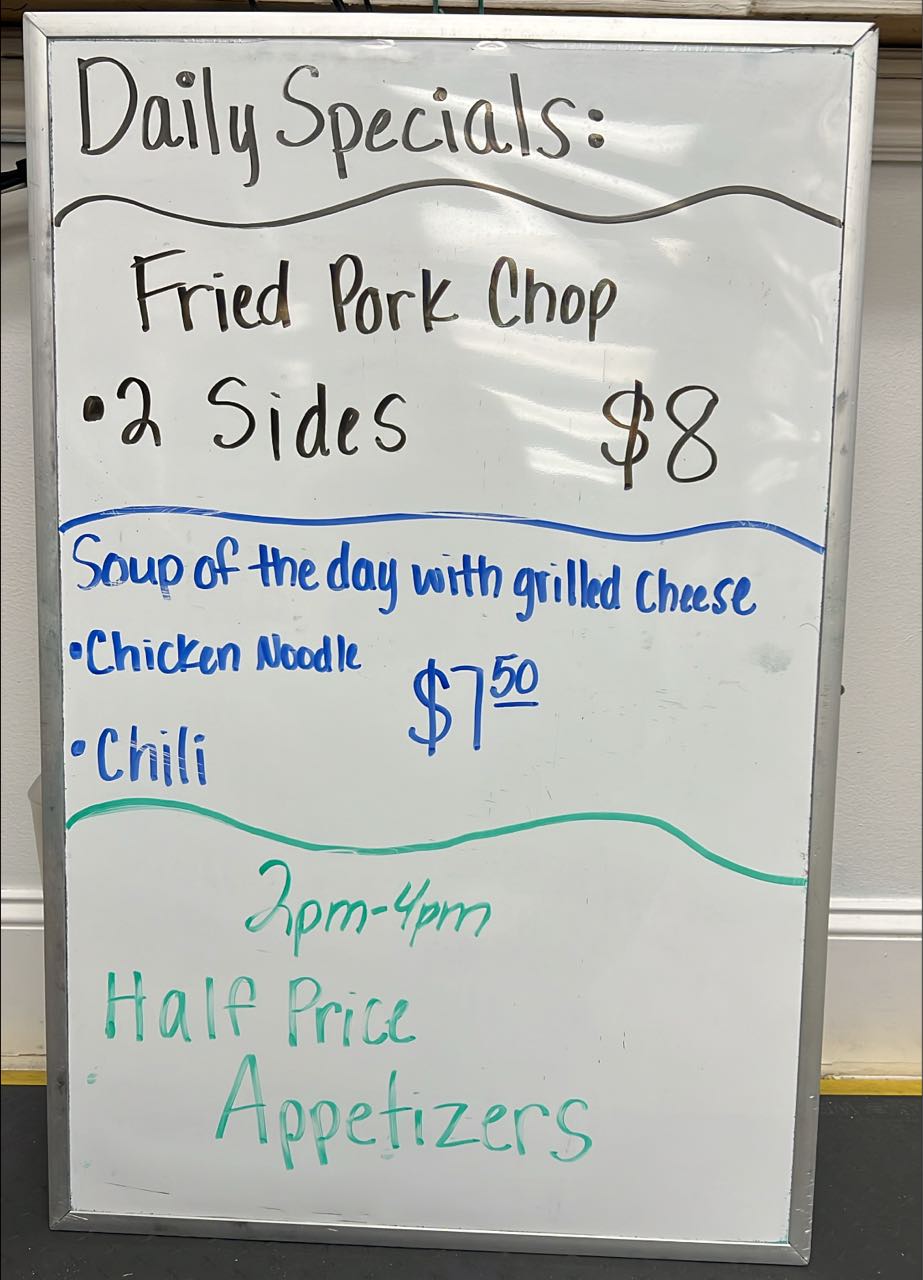 Daily Specials:
Fried Pork Chop
•2 Sides $8
Soup of the day with grilled Cheese
•Chicken Noodle
$7.50
•Chili
2pm-4pm
Half Price
Appetizers